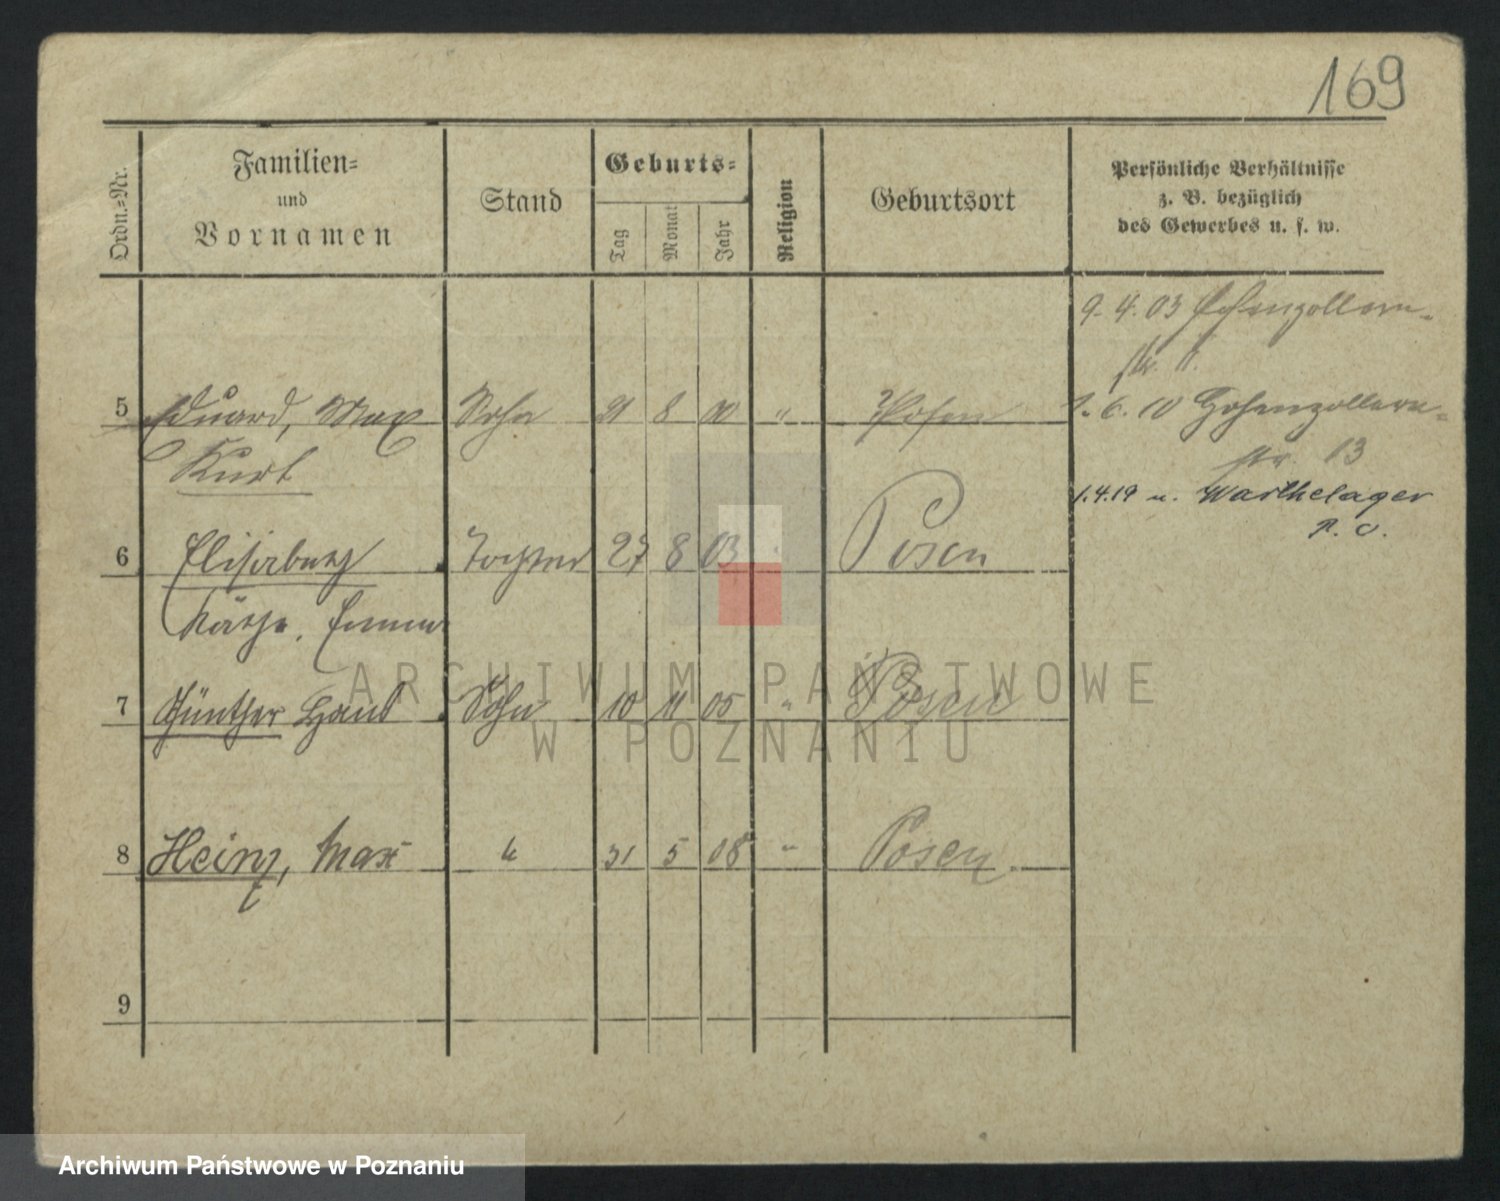 169
Ordn.=Nr.
Familien=
und
Vornamen
Stand
Geburts=
Tag
Monat
Jahr
Religion
Geburtsort
Persönliche Verhältnisse
z. B. bezüglich
des Gewerbes u. s. w.
9. 4. 03 Hohenzollern-
str.
5 Eduard, Max Sohn 21 8 00 " Posen
1. 6. 10 Hohenzollern-
Kurt
str. 13
1.4.19 n. Warthelager
6 Elisabeth Tochter 27 8 03 " Posen
Käthe, Emma
7 Günther Hans Sohn 10 11 05 " Posen
8 Heinz, Max " 31 5 08 " Posen
9
ARCHIWUM PAŃSTWOWE
W POZNANIU
Archiwum Państwowe w Poznaniu